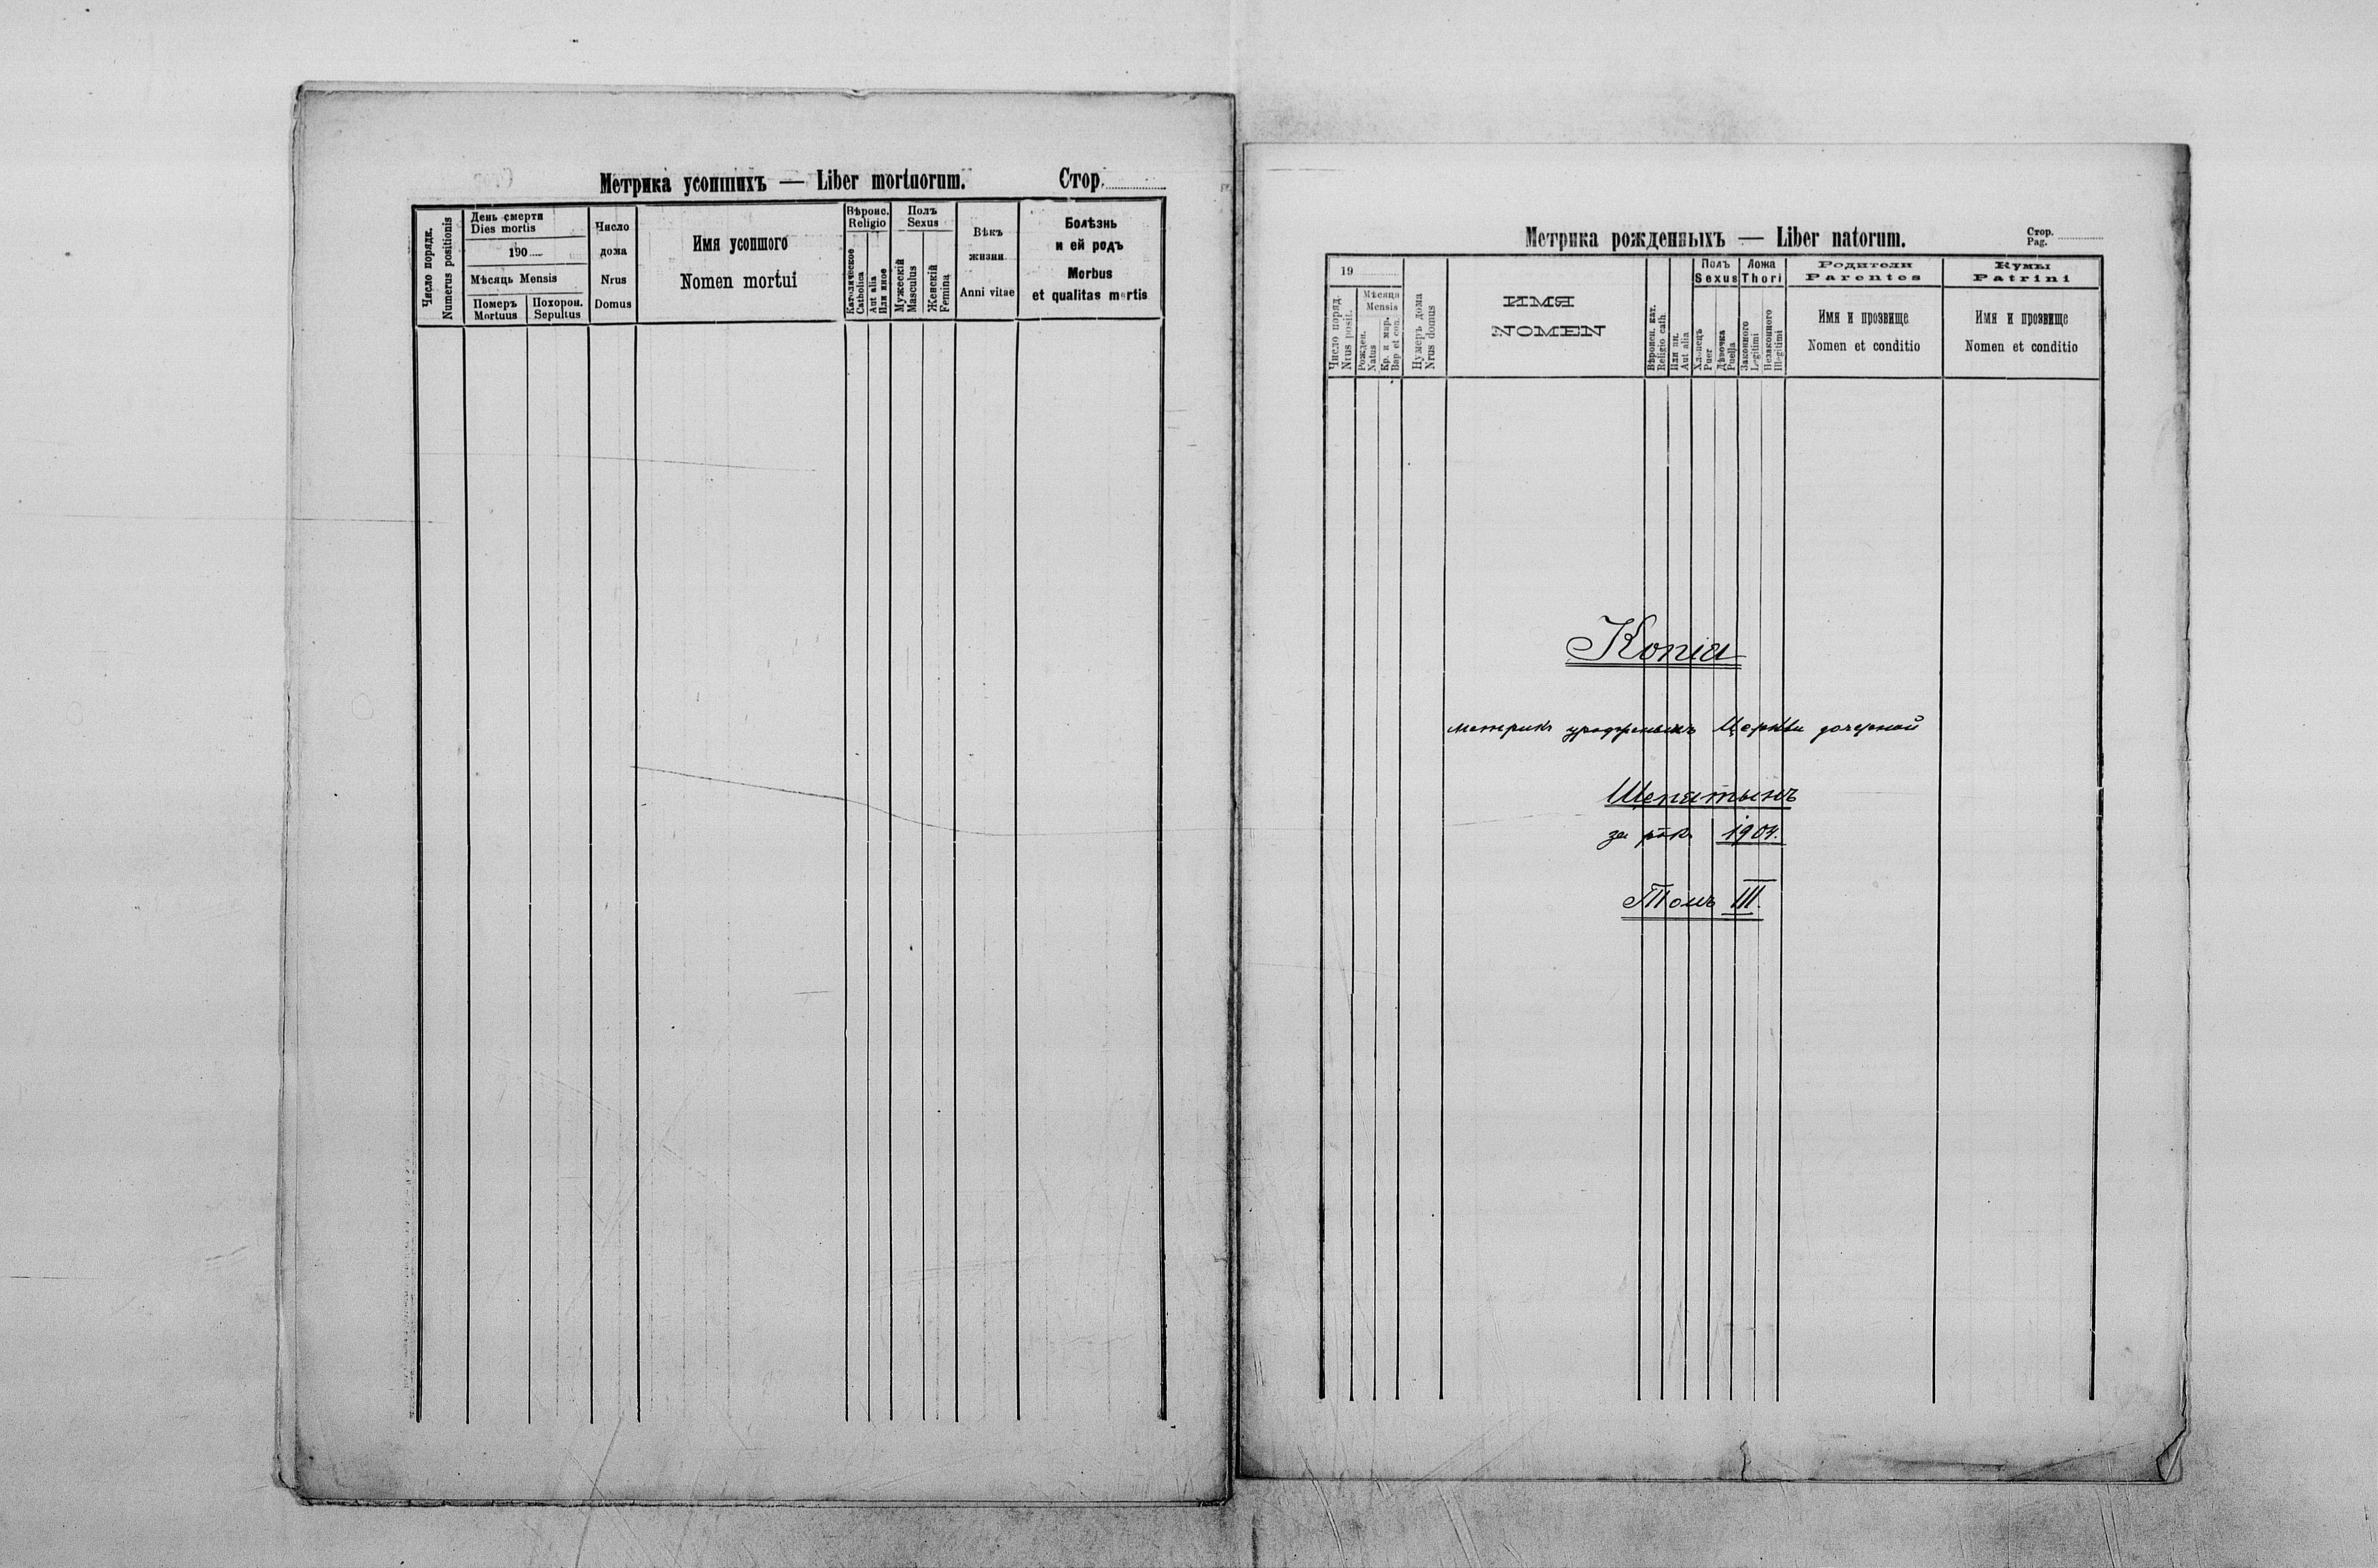 Метрика усопшихъ — Liber mortuorum. Стор.
Число порядк.
Numerus positionis
День смерти
Dies mortis
190
Мѣсяць Mensis
Померъ
Mortuus
Похорон.
Sepultus
Число
дома
Nrus
Domus
Имя усопшого
Nomen mortui
Вѣроис.
Religio
Католическое
Catholica
Aut alia
Или иное
Полъ
Sexus
Мужескій
Masculus
Женскій
Femina
Вѣкъ
жизни
Anni vitae
Болѣзнь
и ей родъ
Morbus
et qualitas mortis
Метрика рожденныхъ — Liber natorum.
Стор.
Pag.
19
Число поряд.
Nrus posit.
Мѣсяца
Mensis
Рожден.
Natus
Кр. и мѵр.
Bap et con.
Нумеръ дома
Nrus domus
ИМЯ
NOMEN
Вѣроисп. кат.
Religio cath.
Или ин.
Aut alia
Полъ
Sexus
Хлопецъ
Puer
Дѣвочка
Puella
Ложа
Thori
Законного
Legitimi
Незаконного
Illegitimi
Родители
Parentes
Имя и прозвище
Nomen et conditio
Кумы
Patrini
Имя и прозвище
Nomen et conditio
Копіа
метрикъ урожденыхъ Церкви дочерной
Щепатынъ
за рôкъ 1904.
Томъ III.